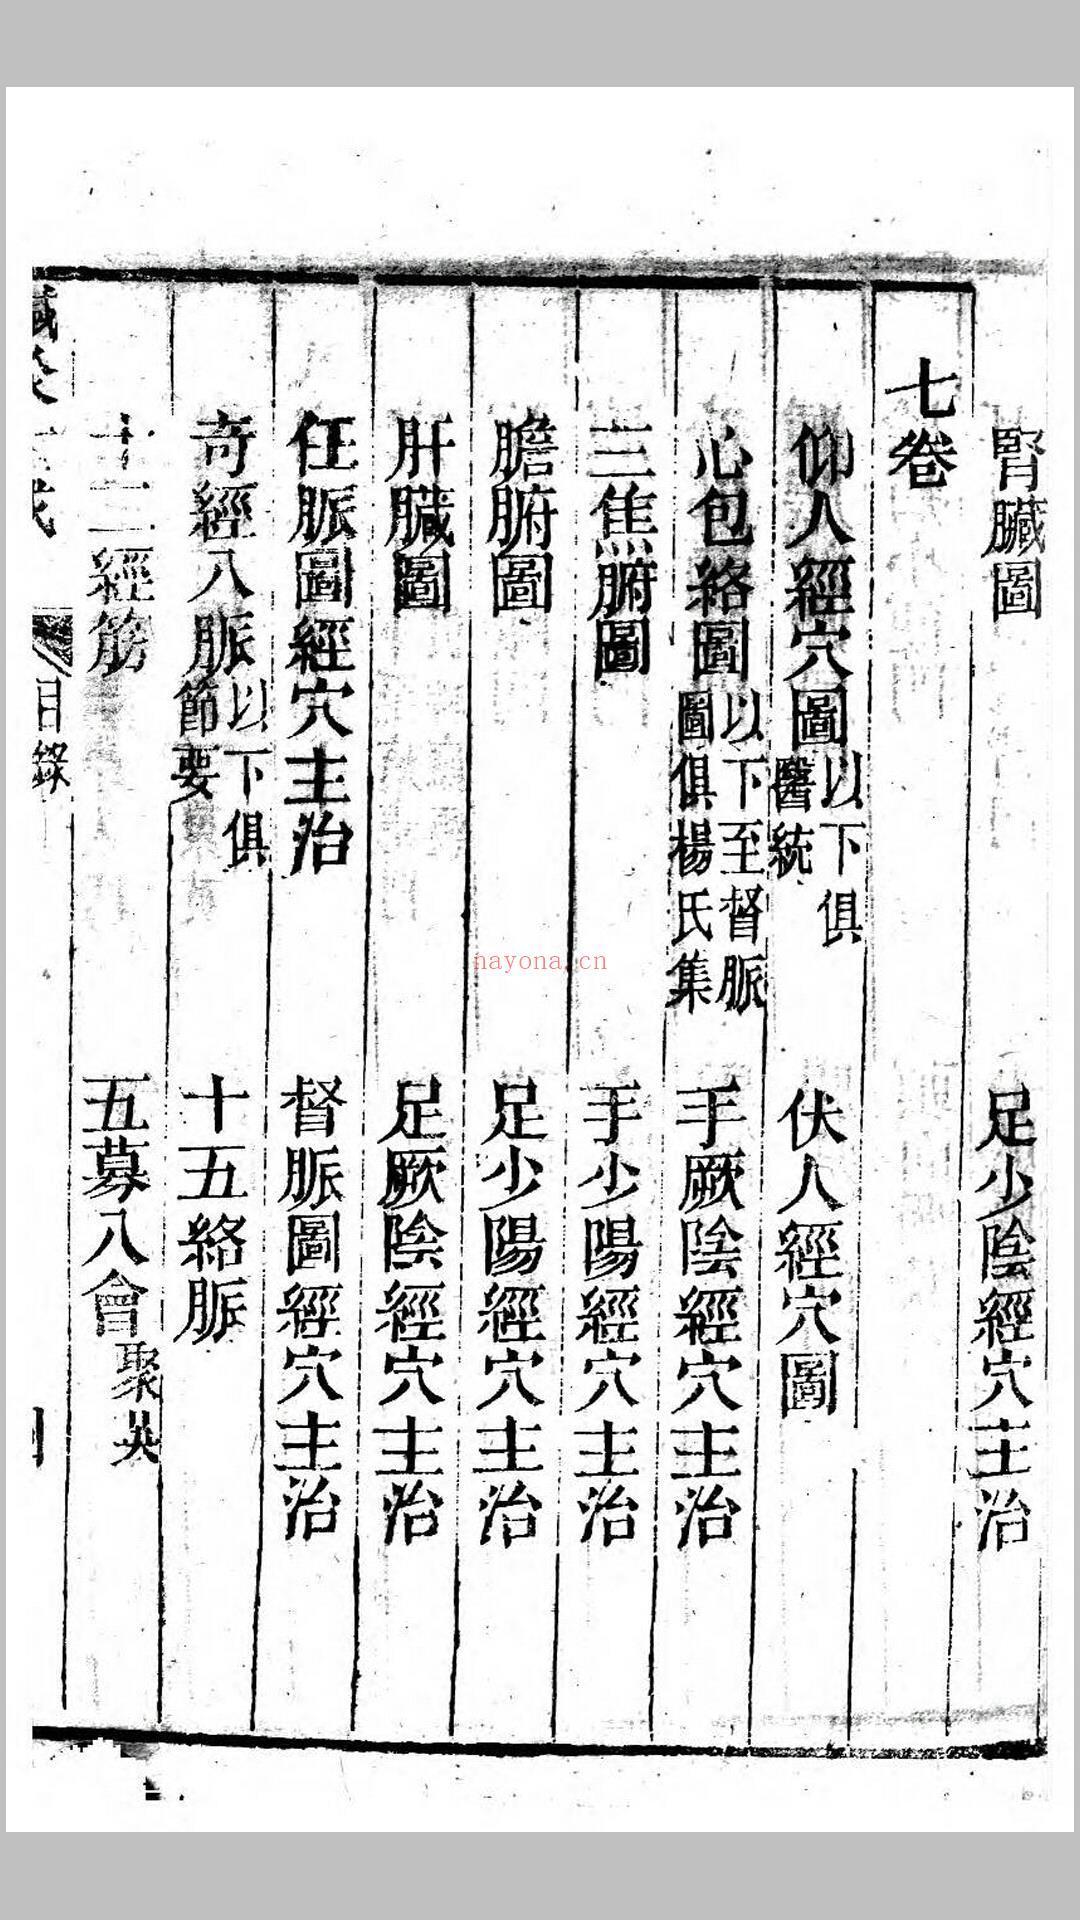 腎臟圖　足少陰經穴主治
七卷
仰人經穴圖 以下俱醫統　伏人經穴圖
心包絡圖 以下至督脈圖俱楊氏集　手厥陰經穴主治
三焦腑圖　手少陽經穴主治
膽腑圖　足少陽經穴主治
肝臟圖　足厥陰經穴主治
任脈圖經穴主治　督脈圖經穴主治
奇經八脈 以下俱節要　十五絡脈
十二經筋　五募八會 聚英
目錄
nayona.cn